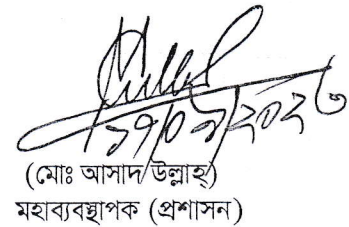 (মোঃ আসাদ উল্লাহ)
মহাব্যবস্থাপক (প্রশাসন)